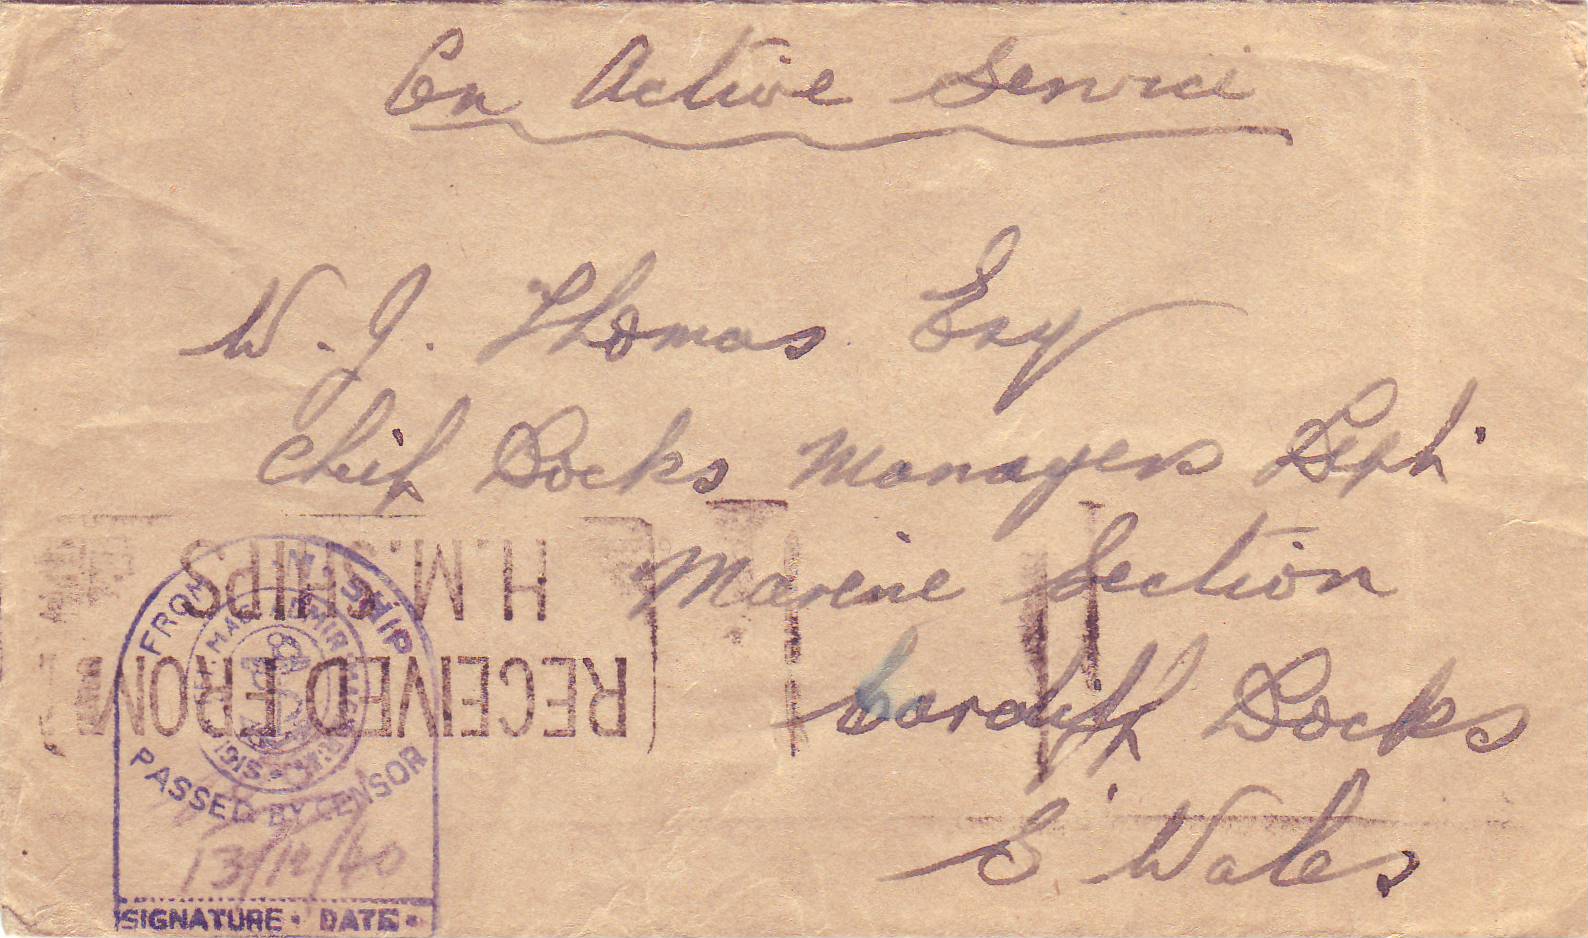 On Active Service
W. J. Thomas Esq
Chief Docks Managers Dept
Marine Section
Cardiff Docks
S. Wales
RECEIVED FROM
H.M. SHIPS
FROM H.M. SHIP
1915
PASSED BY CENSOR
13/12/40
SIGNATURE · DATE ·